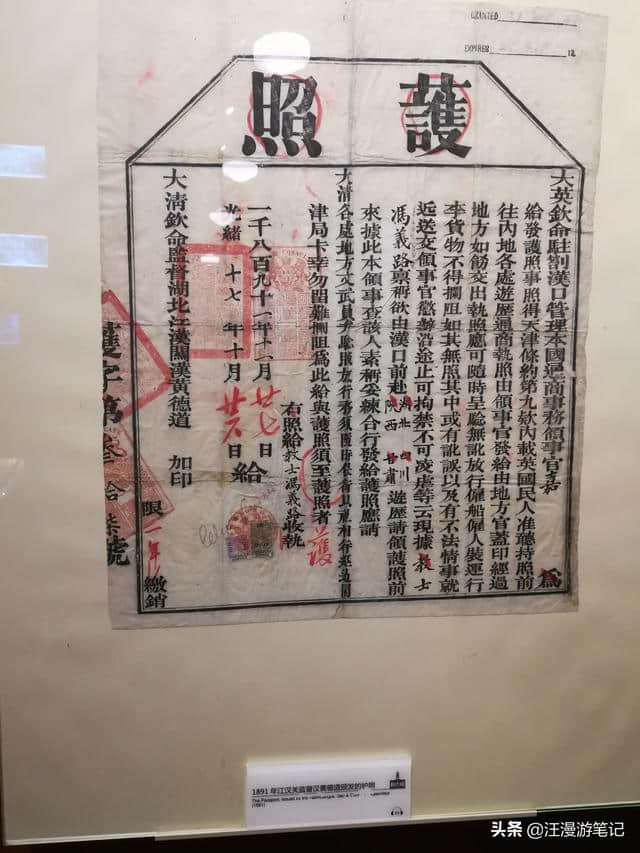 GRANTED
EXPIRES 18
護照
大英欽命駐劄漢口管理本國通商事務領事官嘉 爲
給發護照事照得天津條約第九欵內載英國民人准聽持照前
往內地各處遊歷通商執照由領事官發給由地方官蓋印經過
地方如飭交出執照應可隨時呈驗無訛放行僱船僱人裝運行
李貨物不得攔阻如其無照其中或有訛誤以及有不法情事就
近送交領事官懲辦沿途止可拘禁不可凌虐等云現據教士
馮義路稟稱欲由漢口前赴湖北四川陝西甘肅遊歷請領護照前
來據此本領事查該人素稱妥練合行發給護照應請
大清各處地方文武員弁驗照放行務須隨時保衛相待經過關
津局卡幸勿留難攔阻爲此給與護照須至護照者
護
右照給教士馮義路收執
一千八百九十一年十一月廿七日給
光緒十七年十月廿六日
大清欽命監督湖北江漢關漢黃德道 加印
限一年繳銷
護字第叁拾柒號
1891年江汉关监督汉黄德道颁发的护照
(1891)
头条 @汪漫游笔记